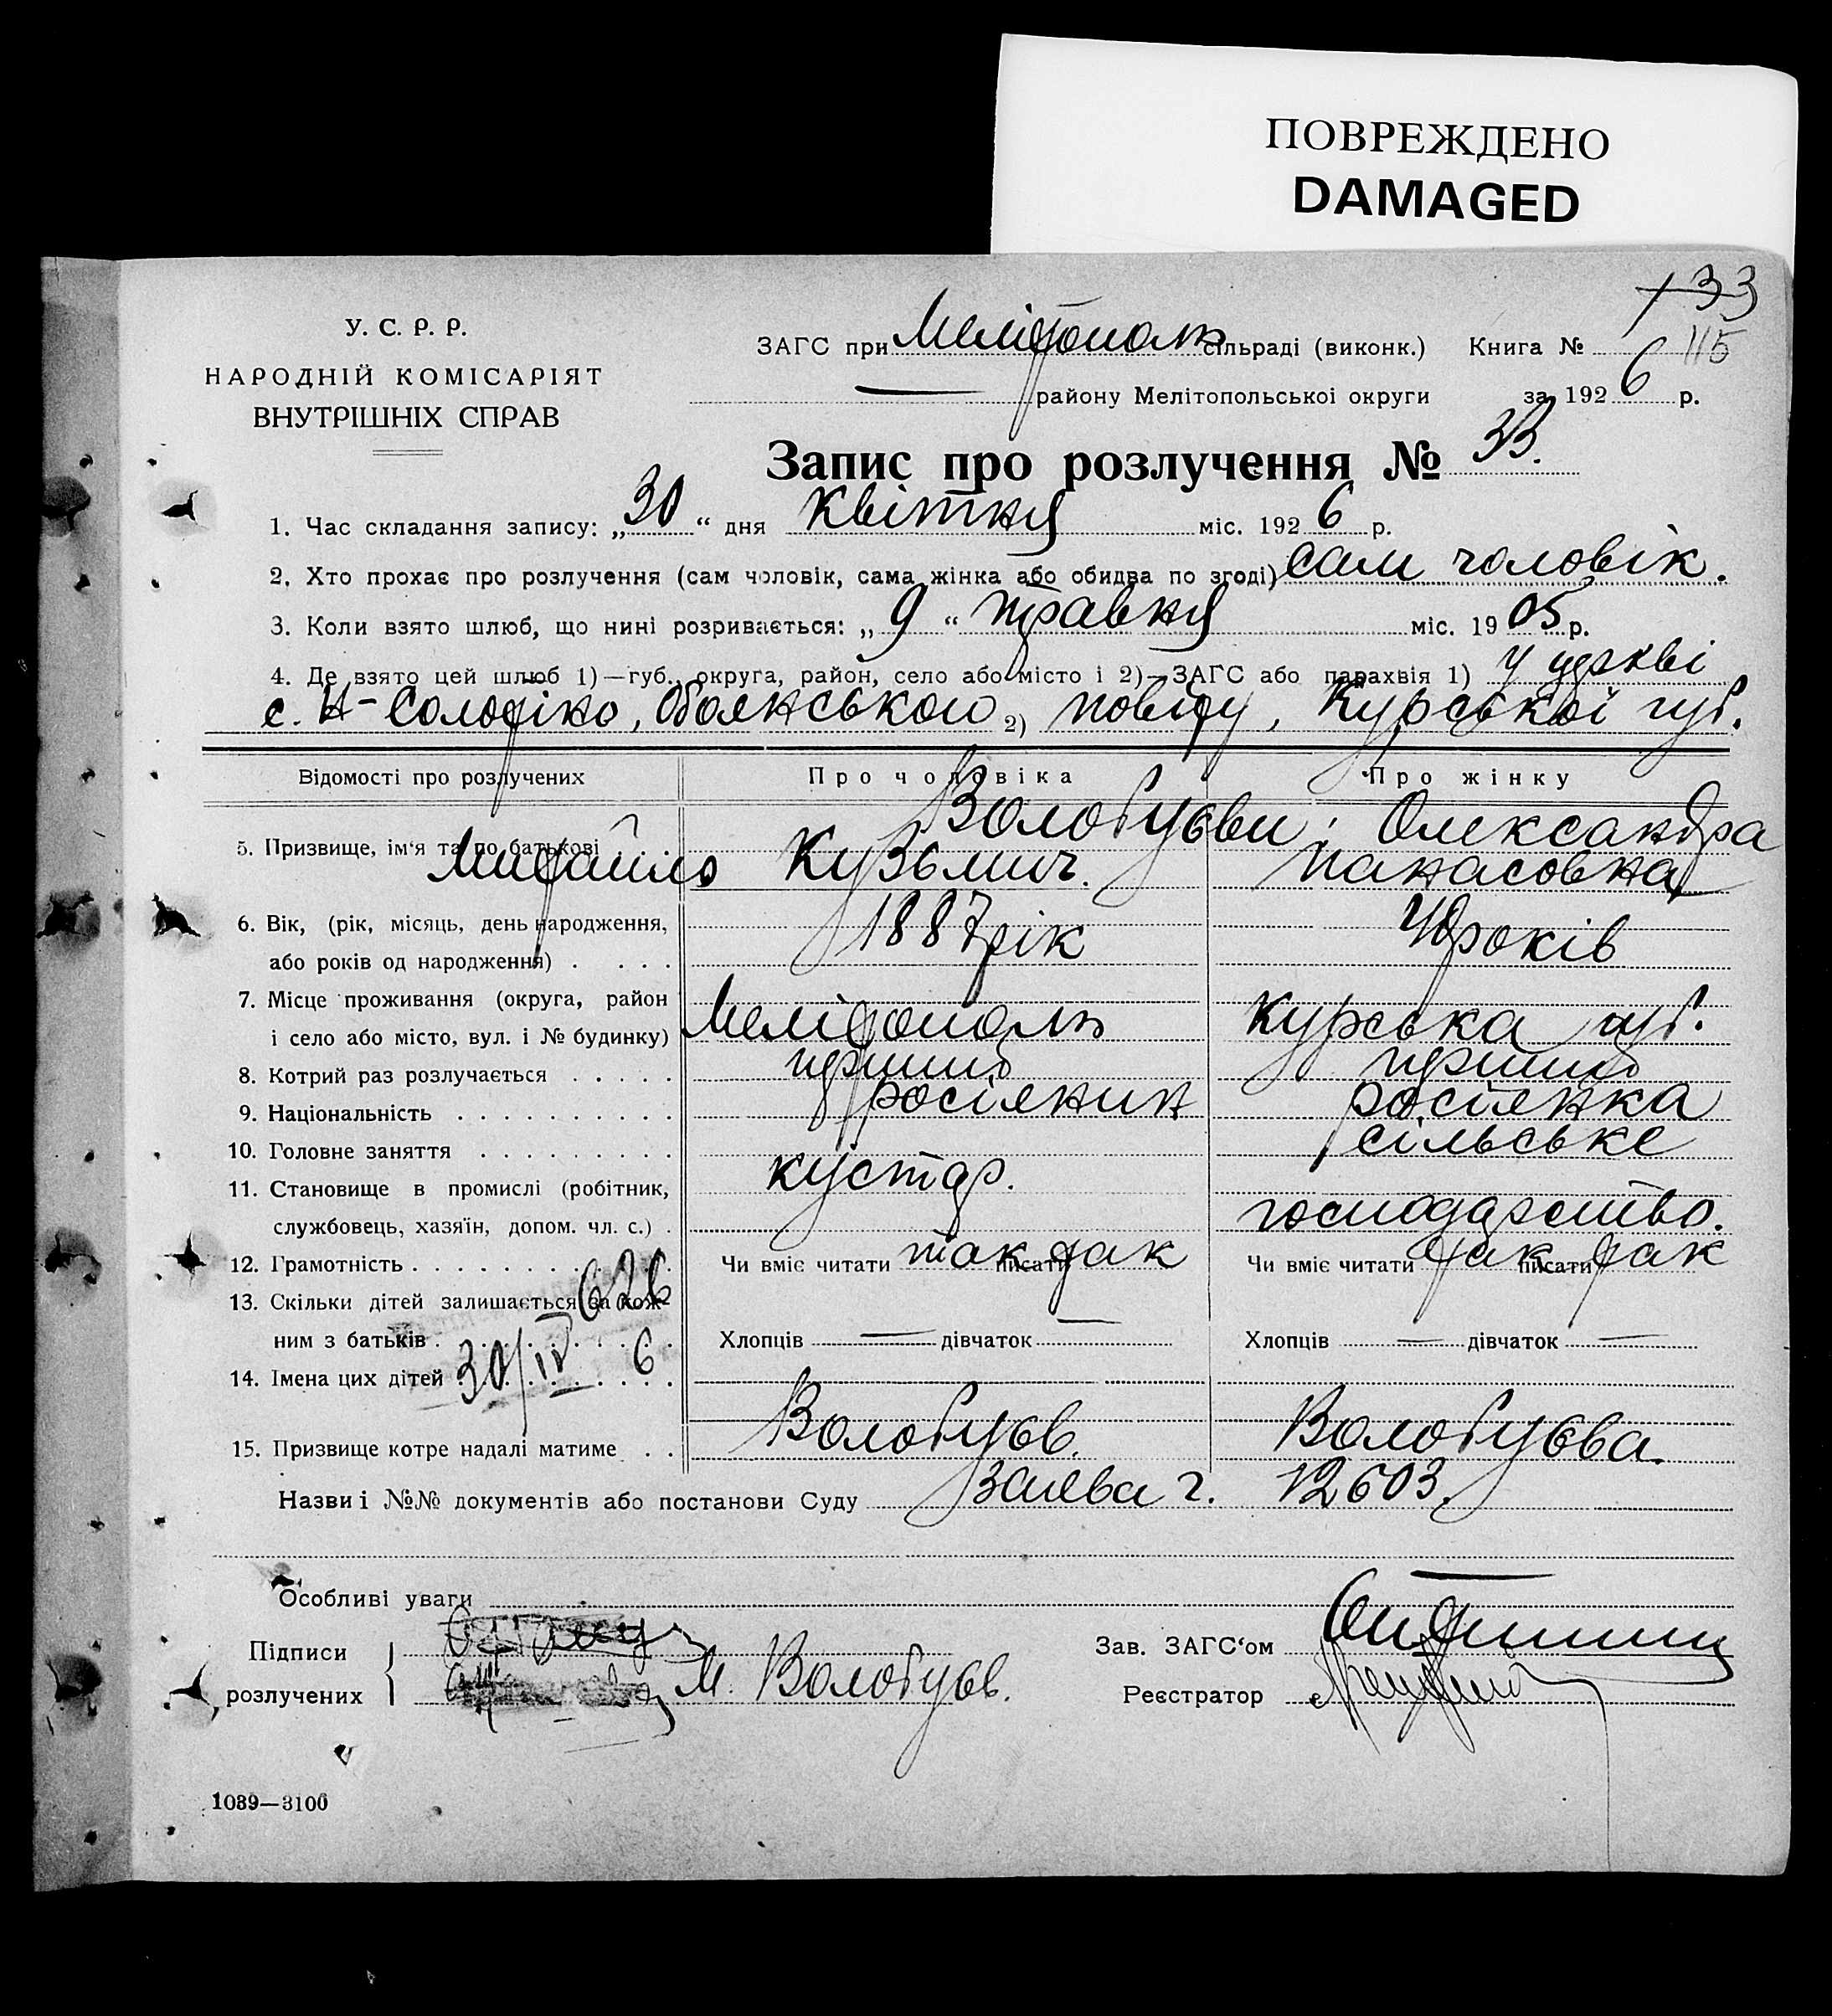 ПОВРЕЖДЕНО
DAMAGED
133
115
У. С. Р. Р.
НАРОДНІЙ КОМІСАРІЯТ
ВНУТРІШНІХ СПРАВ
ЗАГС при Мелітополь сільраді (виконк.) Книга №
— району Мелітопольської округи за 1926 р.
Запис про розлучення № 33.
1. Час складання запису: „30“ дня Квітня міс. 1926 р.
2. Хто прохає про розлучення (сам чоловік, сама жінка або обидва по згоді) сам чоловік.
3. Коли взято шлюб, що нині розривається: „9“ травня міс. 1905 р.
4. Де взято цей шлюб 1)—губ., округа, район, село або місто і 2)—ЗАГС або парахвія 1) У церкві
с. Н-Солотіно, Обоянського 2) повіту, Курської губ.
Відомості про розлучених Про чоловіка Про жінку
5. Призвище, ім‘я та по батькові Волобуєви; Олександра
Михайло Кузьмич. Панасовна
6. Вік, (рік, місяць, день народження, 1887 рік 40 років
або років од народження)
7. Місце проживання (округа, район
і село або місто, вул. і № будинку) Мелітополь Курська губ.
8. Котрий раз розлучається перший перший
9. Національність росіянин росіянка
10. Головне заняття сільське
11. Становище в промислі (робітник, кустар.
службовець, хазяїн, допом. чл. с.) господарство.
12. Грамотність Чи вміє читати так писати так Чи вміє читати так писати так
13. Скільки дітей залишається за кож-
626
ним з батьків Хлопців — дівчаток — Хлопців — дівчаток —
14. Імена цих дітей
30/IV 6
15. Призвище котре надалі матиме Волобуєв. Волобуєва.
Назви і №№ документів або постанови Суду Заява ч. 12603.
Особливі уваги —
Підписи
розлучених М. Волобуєв.
Зав. ЗАГС‘ом
Реєстратор
1039—3100